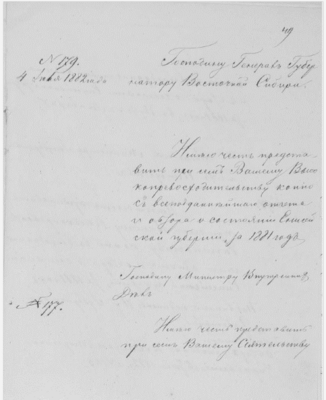 79
N 179.
4 Мая 1882 года
Господину Генералъ Губер
натору Восточной Сибири.
Имѣю честь предста
вить при семъ Вашему Высо
копревосходительству копію
съ всеподданнѣйшаго отчета
и обзора о состояніи
ской губерніи, за 1881 годъ
Господину Министру Внутреннихъ
Дѣлъ
N 177.
Имѣю честь представить
при семъ Вашему Сіятельству